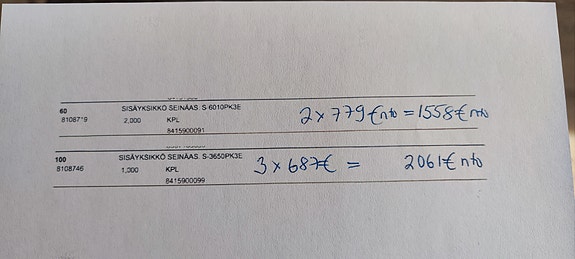 60 SISÄYKSIKKÖ SEINÄAS. S-6010PK3E
8108719 2,000 KPL 2 x 779 € nto = 1558 € nto
8415900091
100 SISÄYKSIKKÖ SEINÄAS. S-3650PK3E
8108746 1,000 KPL 3 x 687 € = 2061 € nto
8415900099